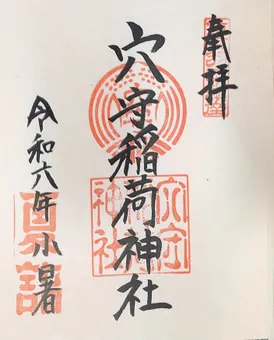 奉拝
穴守稲荷神社
令和六年小暑
穴守
神社